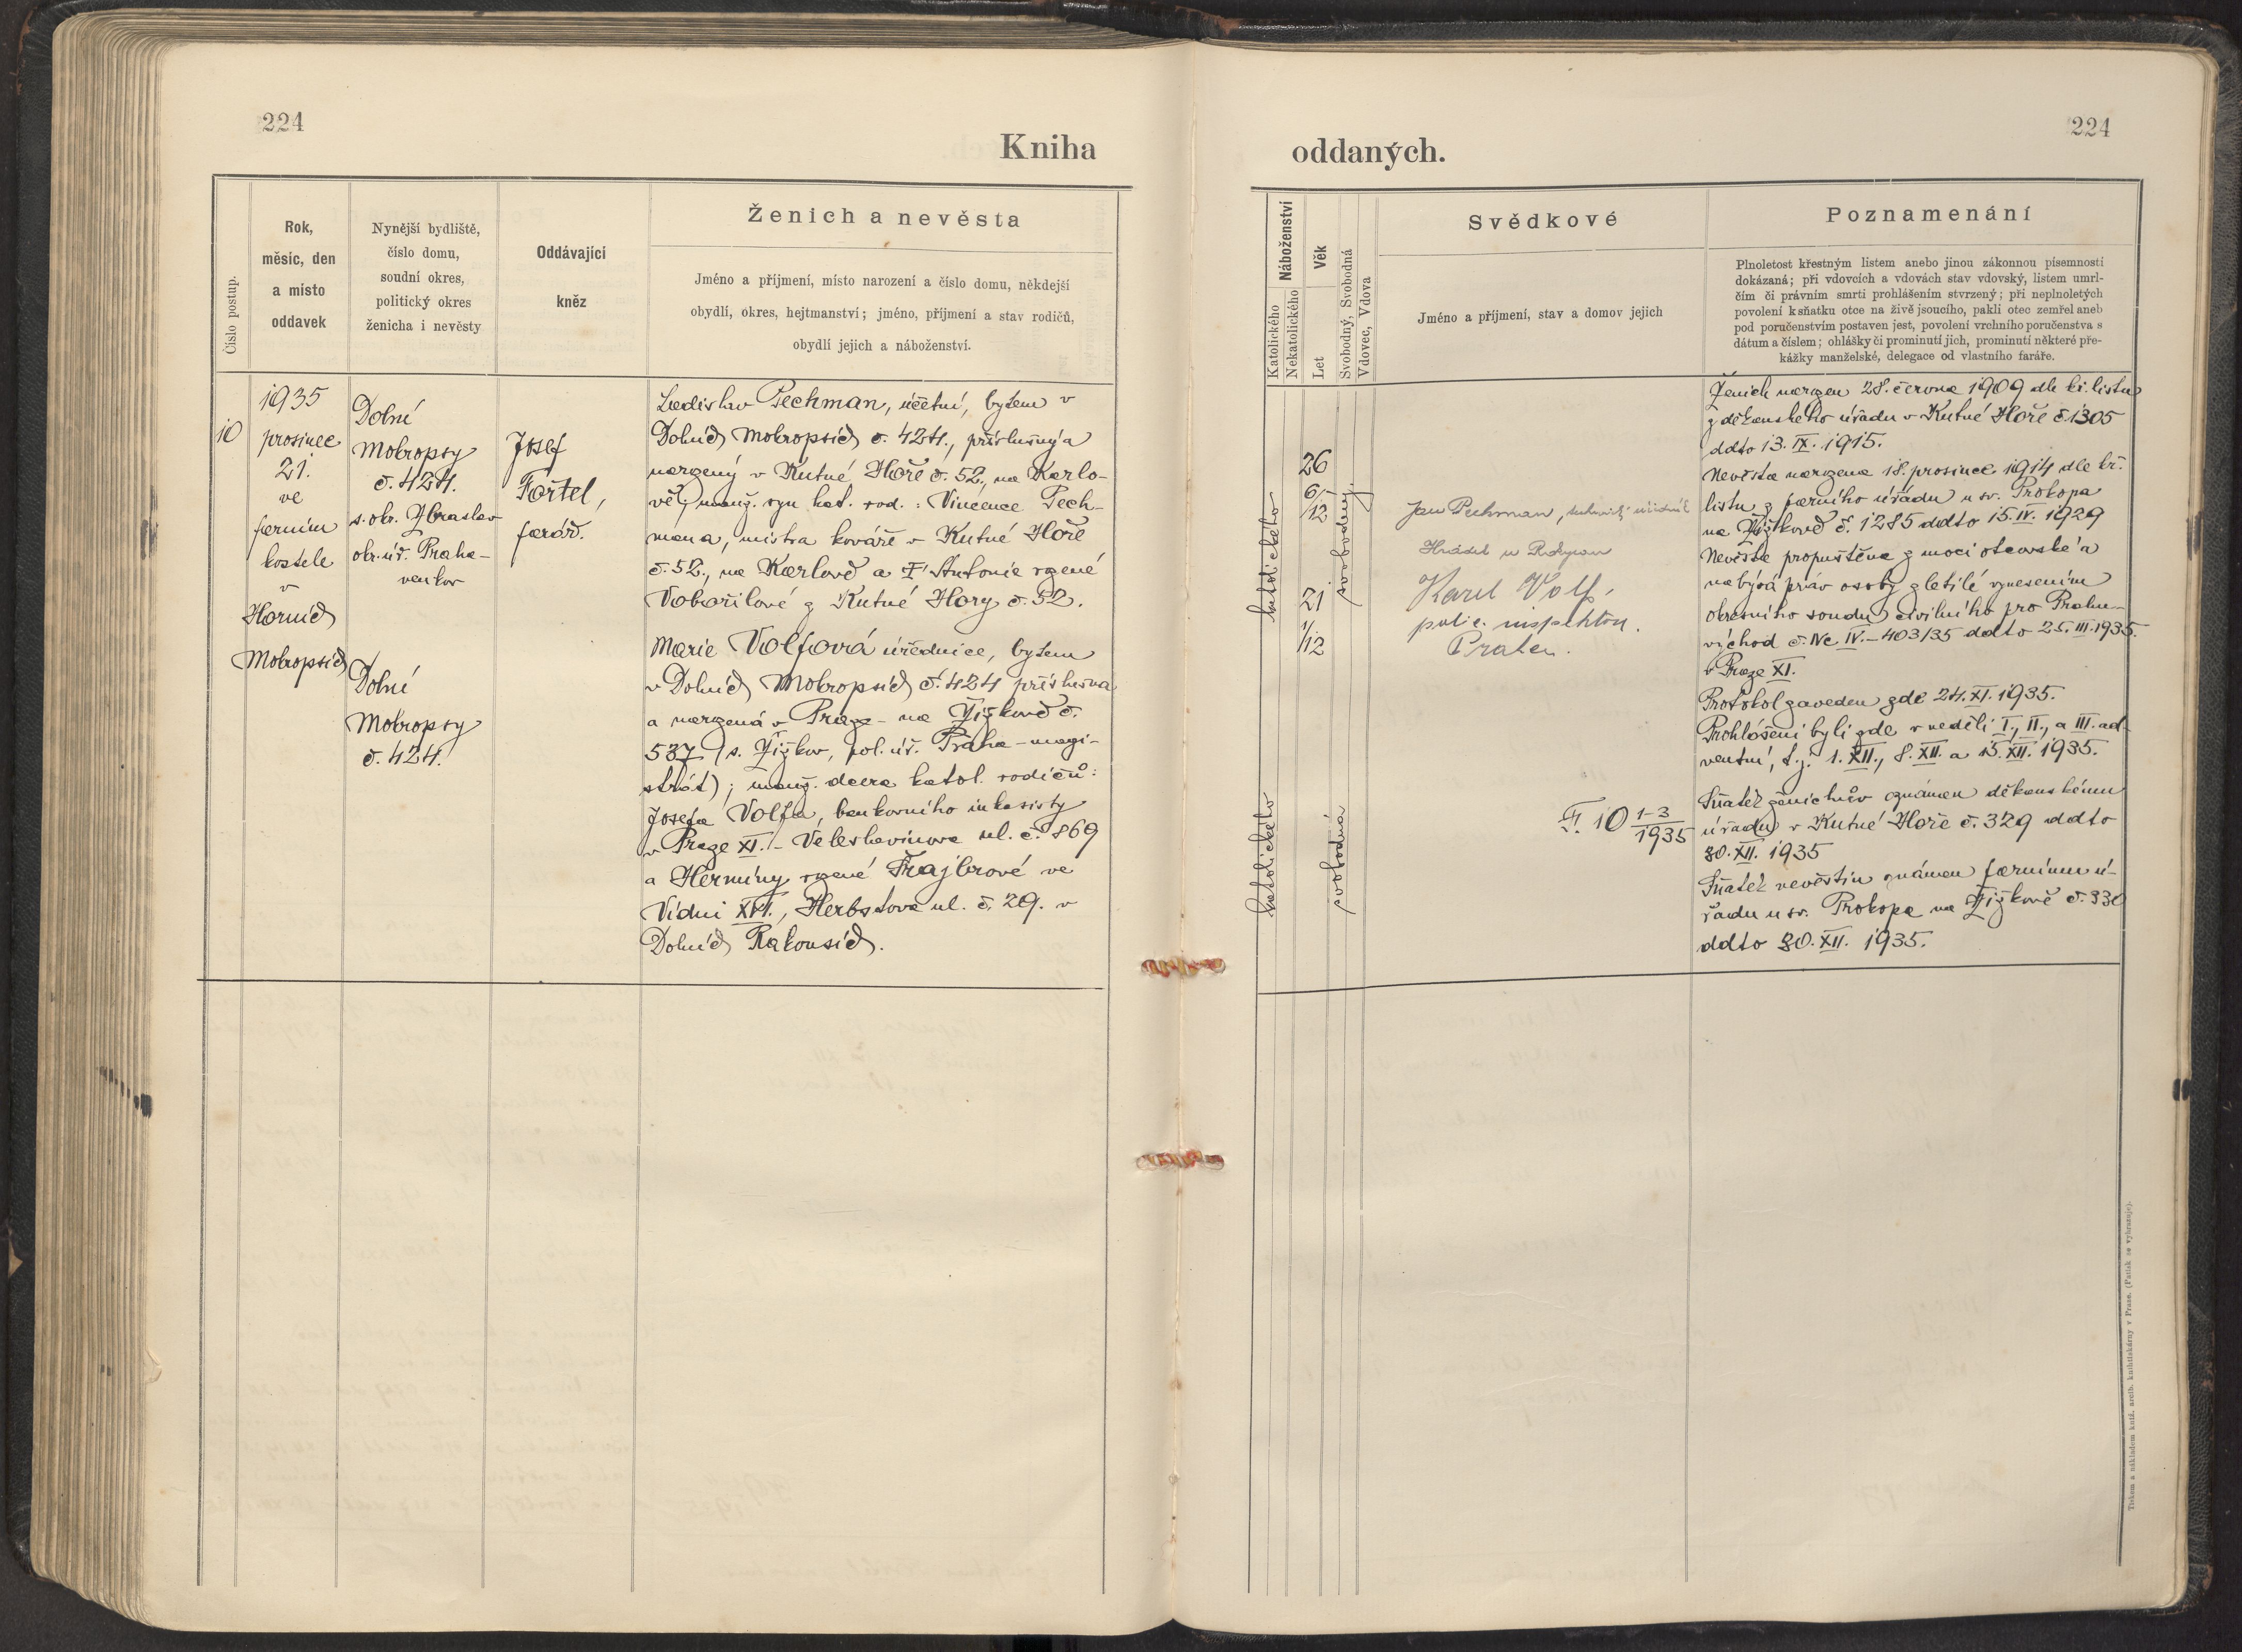 224
Kniha
Číslo postup.
Rok,
měsíc, den
a místo
oddavek
Nynější bydliště,
číslo domu,
soudní okres,
politický okres
ženicha i nevěsty
Oddávající
kněz
Ženich a nevěsta
Jméno a příjmení, místo narození a číslo domu, někdejší
obydlí, okres, hejtmanství; jméno, příjmení a stav rodičů,
obydlí jejich a náboženství.
10
1935
prosince
21.
ve
farním
kostele
v
Horních
Mokropsích
Dolní
Mokropsy
č. 424.
s. okr. Zbraslav
okr. úř. Praha-
venkov
Dolní
Mokropsy
č. 424.
Josef
Fořtel,
farář.
Ladislav Pechman, účetní, bytem v
Dolních Mokropsích č. 424., příslušný a
narozený v Kutné Hoře č. 52., na Karlo-
vě; manž. syn kat. rod.: Vincence Pech-
mana, mistra kováře v Kutné Hoře
č. 52., na Karlově a † Antonie rozené
Vobořilové z Kutné Hory č. 52.
Marie Volfová úřednice, bytem
v Dolních Mokropsích č. 424 příslušná
a narozená v Praze - na Žižkově č.
537 (s. Žižkov, pol. úř. Praha - magi-
strát); manž. dcera katol. rodičů:
Josefa Volfa, bankovního inkasisty
v Praze XI. - Veleslavínova ul. č. 869
a Hermíny rozené Frajbrové ve
Vídni XVI., Herbstova ul. č. 29. v
Dolních Rakousích.
224
oddaných.
Náboženství
Katolického
Nekatolického
Věk
Let
Svobodný, Svobodná
Vdovec, Vdova
Svědkové
Jméno a příjmení, stav a domov jejich
Poznamenání
Plnoletost křestným listem anebo jinou zákonnou písemností
dokázaná; při vdovcích a vdovách stav vdovský, listem umrl-
čím či právním smrti prohlášením stvrzený; při neplnoletých
povolení k sňatku otce na živě jsoucího, pakli otec zemřel aneb
pod poručenstvím postaven jest, povolení vrchního poručenstva s
dátum a číslem; ohlášky či prominutí jich, prominutí některé pře-
kážky manželské, delegace od vlastního faráře.
katolického
26
6/12
svobodný
21
1/12
katolického
svobodná
Jan Pechman,
Karel Volf,
polic. inspektor.
F. 10 1-3/1935
Ženich narozen 28. června 1909 dle kř. listu
z děkanského úřadu v Kutné Hoře č. 1305
ddto 13. IX. 1915.
Nevěsta narozena 18. prosince 1914 dle kř.
listu z farního úřadu u sv. Prokopa
na Žižkově č. 1285 ddto 15. IV. 1929
Nevěsta propuštěna z moci otcovské a
nabývá práv osoby zletilé vynesením
okresního soudu civilního pro Prahu-
východ č. Nc IV. - 403/35 ddto 25. III. 1935.
v Praze XI.
Protokol zaveden zde 24. XI. 1935.
Prohlášeni byli zde v neděli I., II., a III. ad-
ventní, t. j. 1. XII., 8. XII. a 15. XII. 1935.
Sňatek ženichův oznámen děkanskému
úřadu v Kutné Hoře č. 329 ddto
30. XII. 1935
Sňatek nevěstin oznámen farnímu ú-
řadu u sv. Prokopa na Žižkově č. 330
ddto 30. XII. 1935.
Tiskem a nákladem kníž. arcib. knihtiskárny v Praze. (Patisk se vyhrazuje).